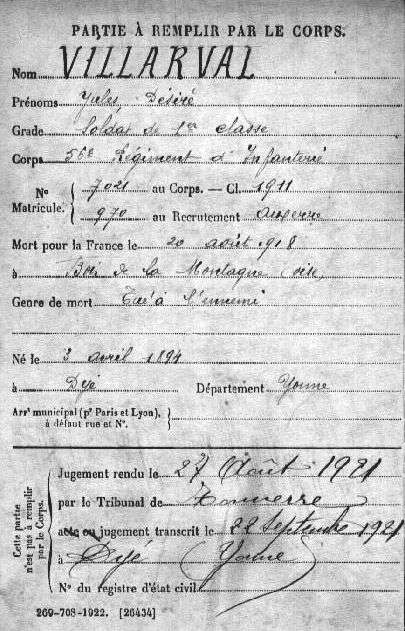 PARTIE À REMPLIR PAR LE CORPS.
Nom VILLARVAL
Prénoms Jules Désiré
Grade Soldat de 1re classe
Corps 55e Régiment d'Infanterie
No Matricule. { 7021 au Corps. — Cl. 1911
970 au Recrutement Auxerre
Mort pour la France le 20 août 1918
à Bois de la Montagne Oise
Genre de mort Tué à l'ennemi
Né le 3 avril 1894
à Dye Département Yonne
Arrt municipal (pr Paris et Lyon), }
à défaut rue et No.
Cette partie
n'est pas à remplir
par le Corps.
Jugement rendu le 27 Août 1921
par le Tribunal de Tonnerre
acte ou jugement transcrit le 22 Septembre 1921
à Dyé Yonne
No du registre d'état civil
269-708-1922. [26434]